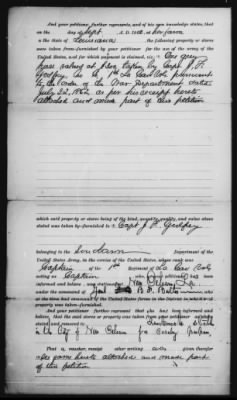 And your petitioner further represents, and of his own knowledge states, that
on the day of Sept A.D. 1862, at her farm
in the State of Louisiana, the following property or stores
were taken from furnished by your petitioner for the use of the army of the
United States, and for which payment is claimed, viz: One gray
horse valued at taken by Capt J. F.
Godfrey Co. 1st La Cavalry pursuant
to the order of the War Department dated
July 22, 1862 as per his receipt hereto
attached and made part of this petition
which said property or stores being of the kind, quantity, quality, and value above
stated was taken by furnished to Capt J. F. Godfrey
belonging to the Department of the
United States Army, in the service of the United States, rank was
Captain of the 1st Regiment of La Cav Vols
acting as Captain who petitioner has been
informed and believes was stationed at New Orleans La
under the command of Genl B. F. Butler
at the time had command of the United States forces in the District in which said
property was taken furnished.
And your petitioner further represents that she has been informed and
believes, that the said stores or property were taken from your petitioner as before
stated and removed to
in the City of New Orleans for Cavalry purposes
That a voucher, receipt or other writing was given therefor
as given hereto attached and made part
of this petition